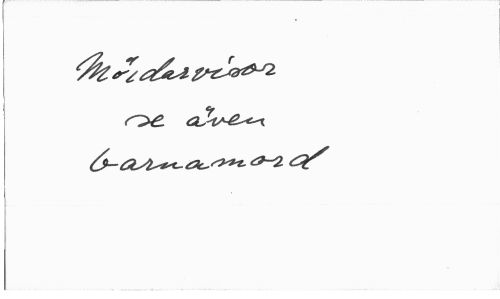 Mördarvisor
se även
barnamord